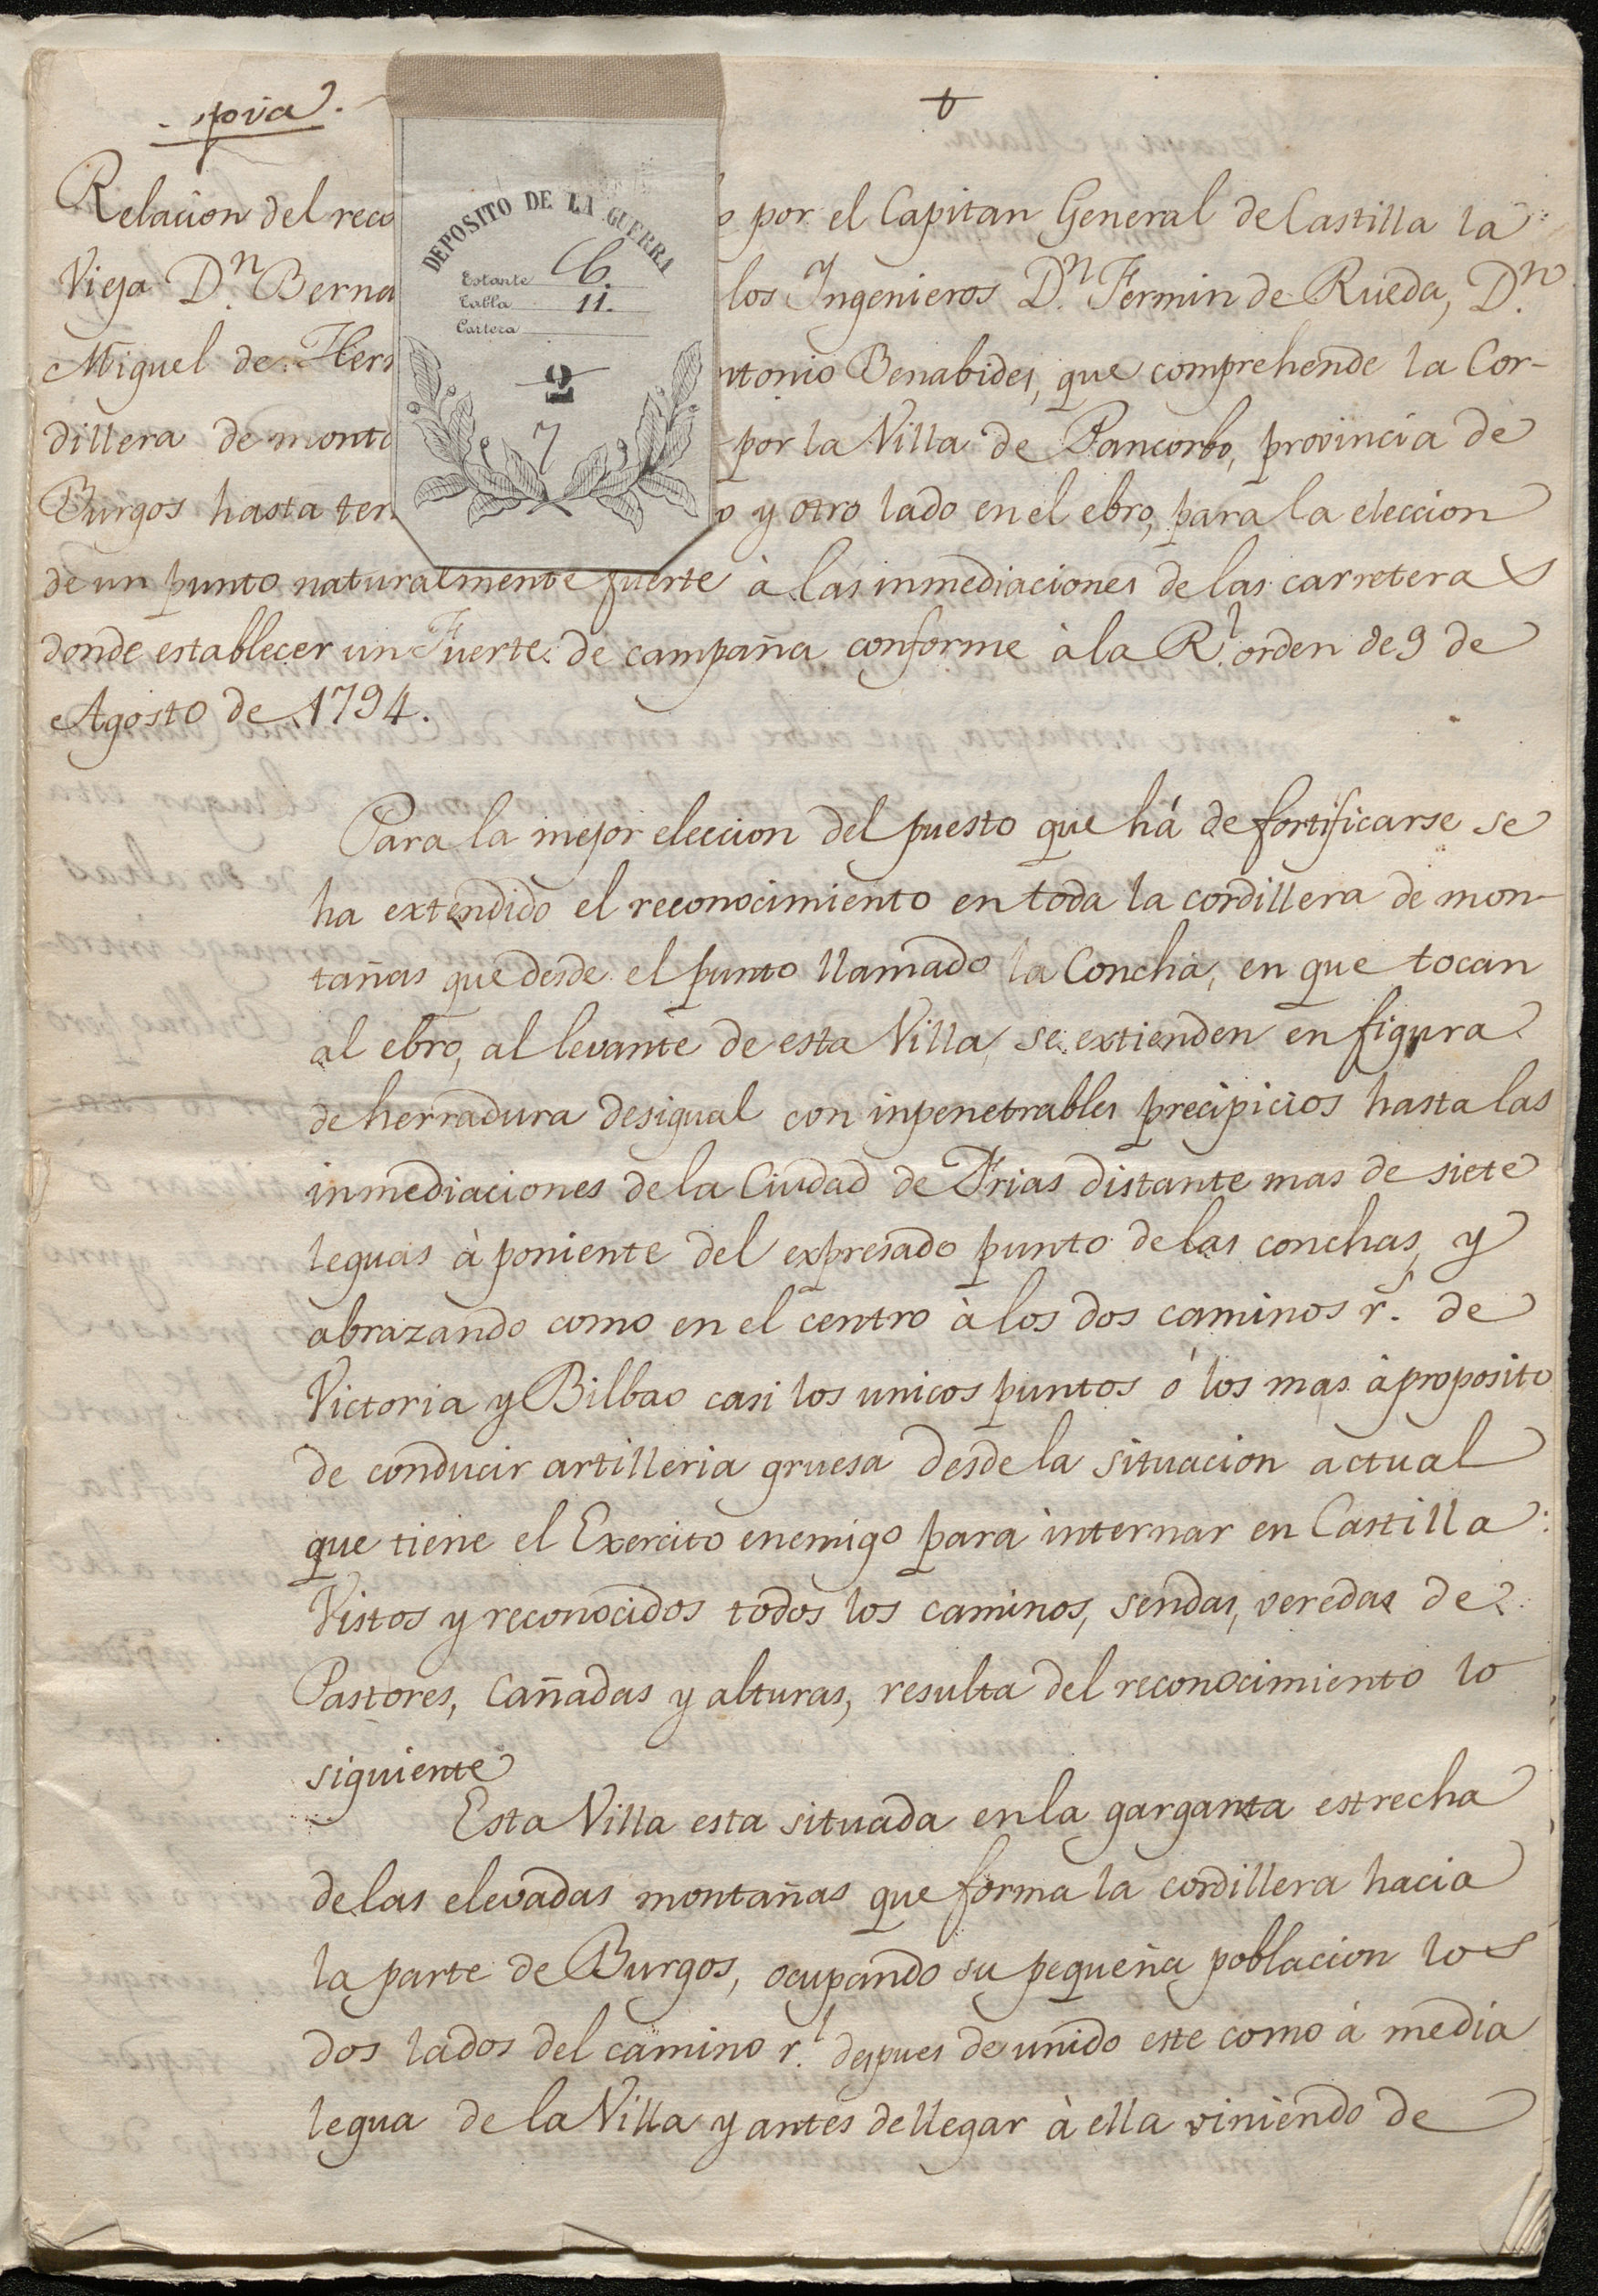 copia.
DEPOSITO DE LA GUERRA
Estante C.
Tabla 11.
Cartera
2
7
Relacion del reco o por el Capitan General de Castilla la
Vieja D.n Berna los Ingenieros D.n Fermin de Rueda, D.n
Miguel de Her ntonio Benabides, que comprehende la Cor-
dillera de monta por la Villa de Pancorbo, provincia de
Burgos hasta ter o y otro lado en el ebro, para la eleccion
de un punto naturalmente fuerte à las inmediaciones de las carreteras
donde establecer un Fuerte de campaña conforme à la R.l orden de 9 de
Agosto de 1794.
Para la mejor eleccion del puesto que há de fortificarse se
ha extendido el reconocimiento en toda la cordillera de mon-
tañas que desde el punto llamado la Concha, en que tocan
al ebro, al levante de esta Villa, se extienden en figura
de herradura desigual con inpenetrables precipicios hasta las
inmediaciones de la Ciudad de Frias distante mas de siete
leguas à poniente del expresado punto de las conchas, y
abrazando como en el centro à los dos caminos r.s de
Victoria y Bilbao casi los unicos puntos ó los mas àproposito
de conducir artilleria gruesa desde la situacion actual
que tiene el Exercito enemigo para internar en Castilla:
Vistos y reconocidos todos los caminos, sendas, veredas de
Pastores, Cañadas y alturas, resulta del reconocimiento lo
siguiente
Esta Villa esta situada en la garganta estrecha
de las elevadas montañas que forma la cordillera hacia
la parte de Burgos, ocupando su pequeña poblacion los
dos lados del camino r.l despues de unido este como à media
legua de la Villa y antes de llegar à ella viniendo de